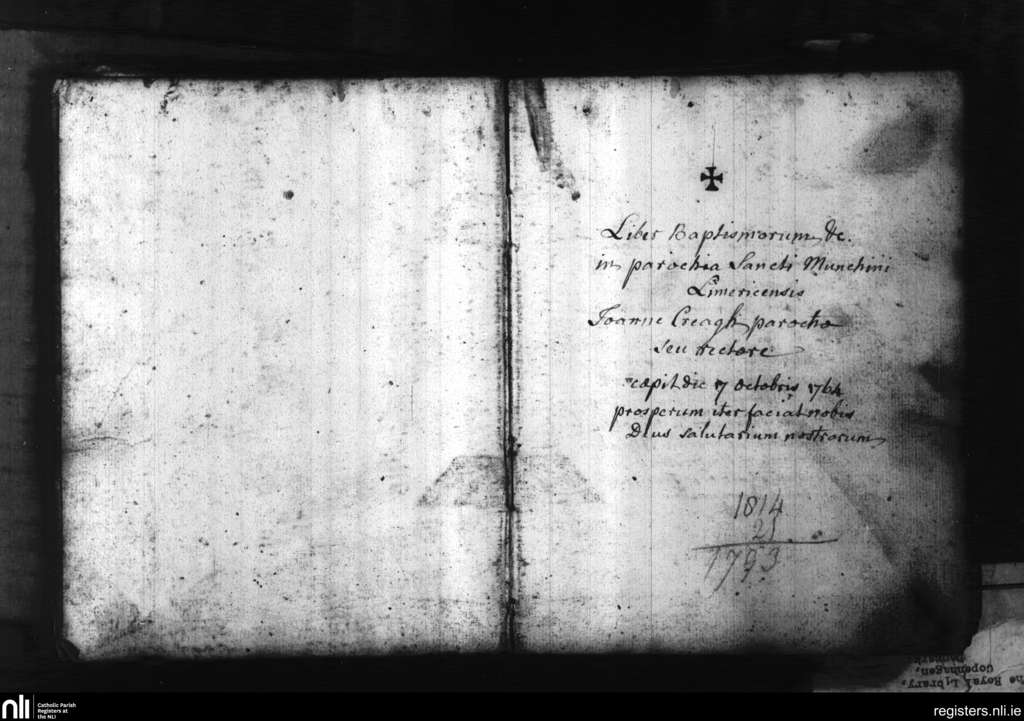 Liber Baptismorum &c.
in parochia Sancti Munchini
Limericensis
Joanne Creagh parocho
seu rectore
cœpit die 7 octobris 1764
prosperum iter faciat nobis
Deus salutarium nostrorum
1814
21
1793
The Royal Library,
Copenhagen,
nli Catholic Parish
Registers at
the NLI
registers.nli.ie